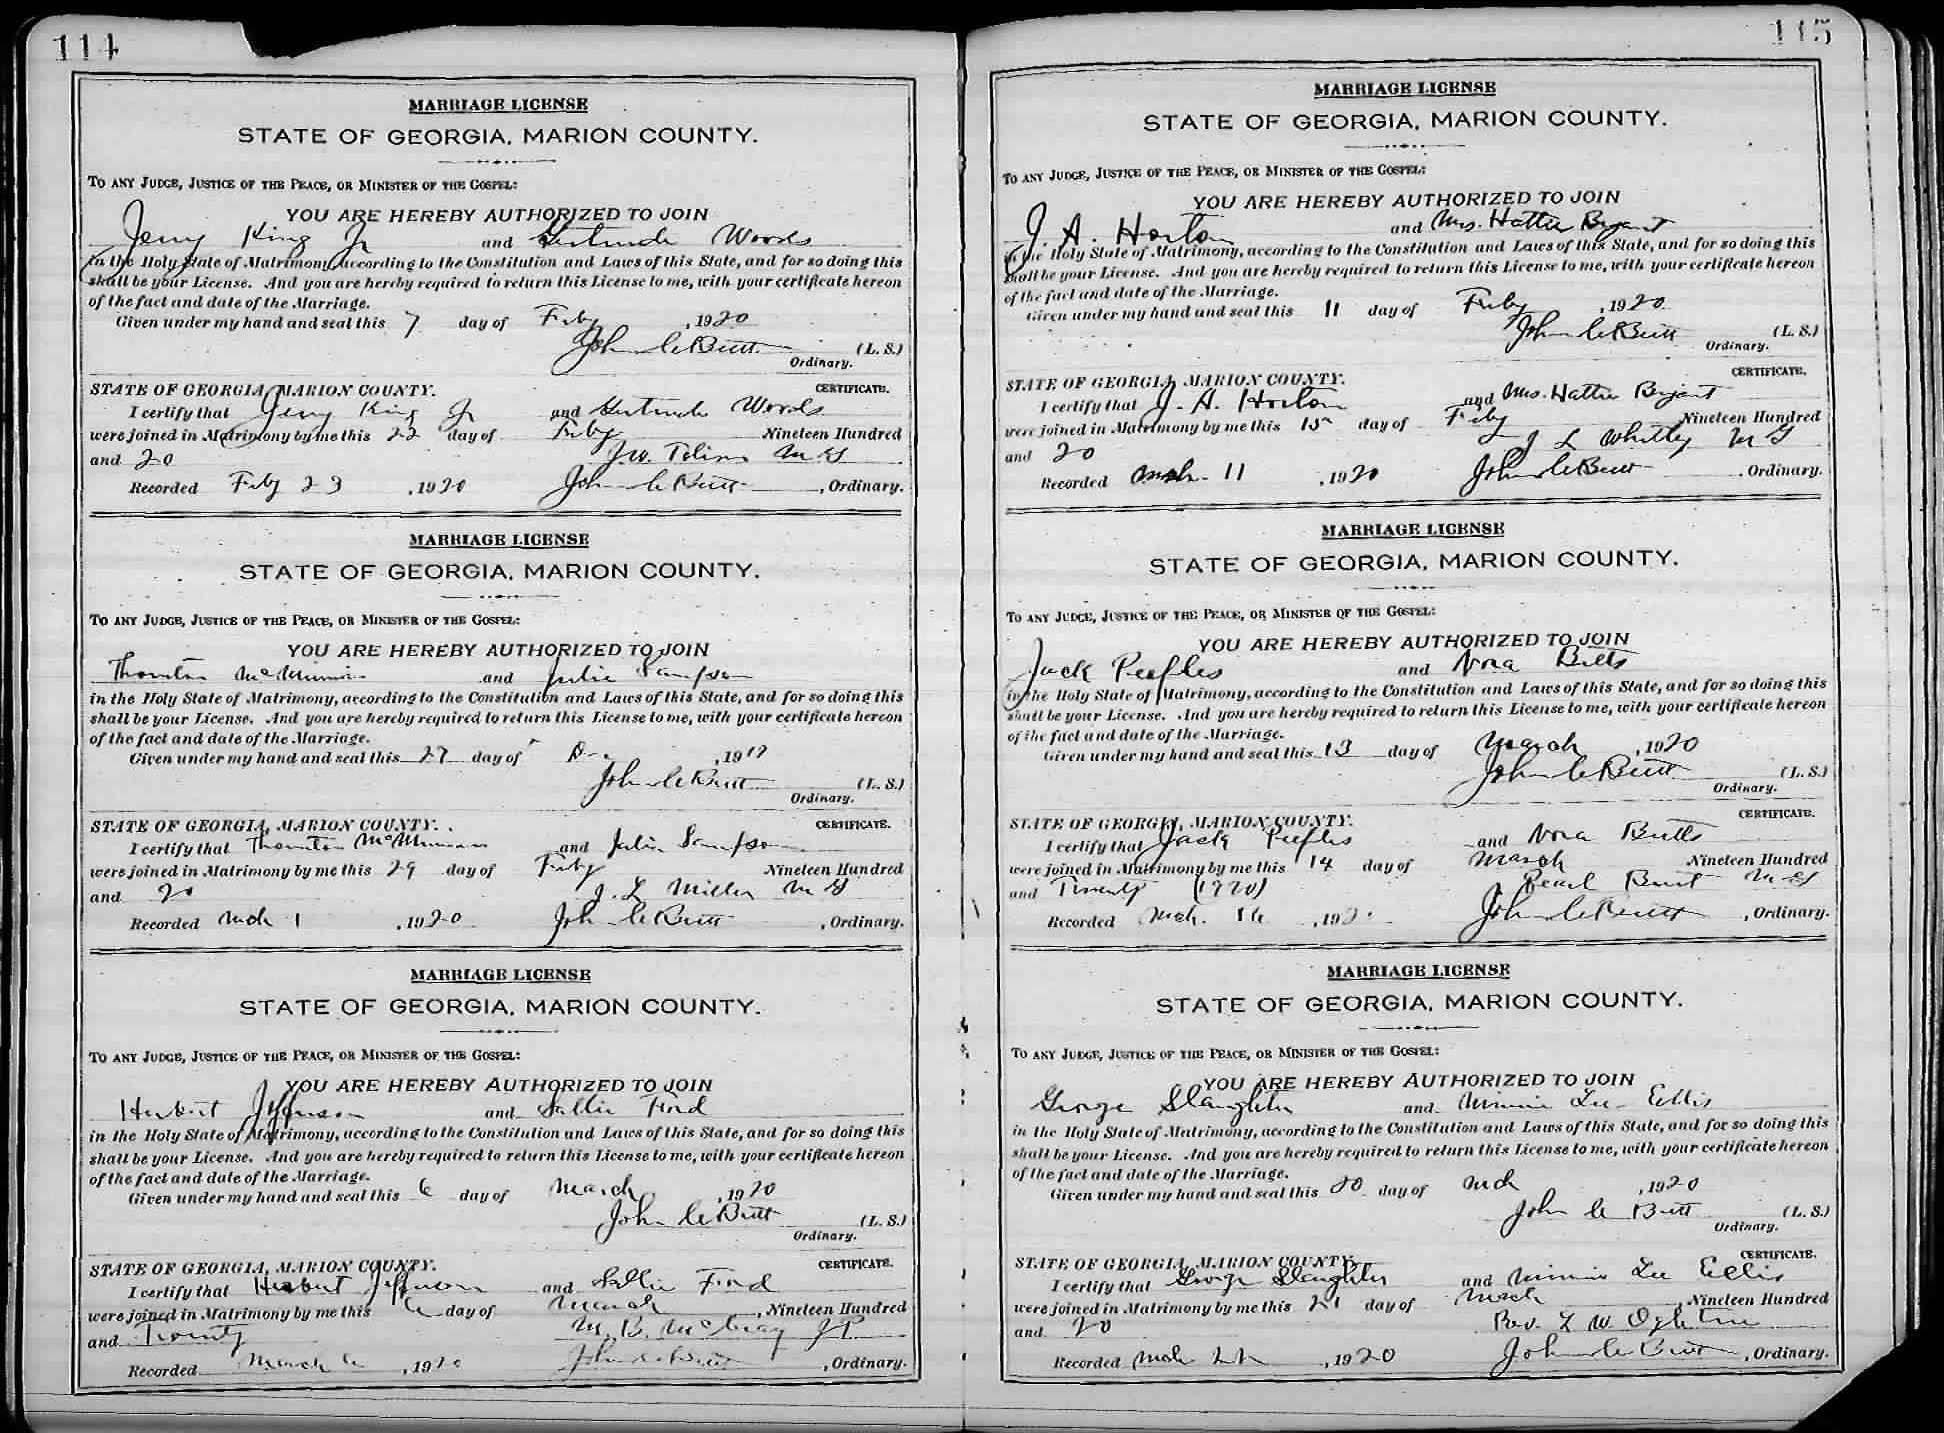 114
MARRIAGE LICENSE
STATE OF GEORGIA, MARION COUNTY.
TO ANY JUDGE, JUSTICE OF THE PEACE, OR MINISTER OF THE GOSPEL:
YOU ARE HEREBY AUTHORIZED TO JOIN
Jerry King Jr and Gertrude Woods
in the Holy State of Matrimony, according to the Constitution and Laws of this State, and for so doing this
shall be your License. And you are hereby required to return this License to me, with your certificate hereon
of the fact and date of the Marriage.
Given under my hand and seal this 7 day of Feby, 1920
John C Butt (L. S.)
Ordinary.
STATE OF GEORGIA, MARION COUNTY. CERTIFICATE.
I certify that Jerry King Jr and Gertrude Woods
were joined in Matrimony by me this 22 day of Feby Nineteen Hundred
and 20 J.W. M G
Recorded Feby 23, 1920 John C Butt, Ordinary.
MARRIAGE LICENSE
STATE OF GEORGIA, MARION COUNTY.
TO ANY JUDGE, JUSTICE OF THE PEACE, OR MINISTER OF THE GOSPEL:
YOU ARE HEREBY AUTHORIZED TO JOIN
Thornton and Julia Sampson
in the Holy State of Matrimony, according to the Constitution and Laws of this State, and for so doing this
shall be your License. And you are hereby required to return this License to me, with your certificate hereon
of the fact and date of the Marriage.
Given under my hand and seal this 27 day of, 1919
John C Butt (L. S.)
Ordinary.
STATE OF GEORGIA, MARION COUNTY. CERTIFICATE.
I certify that Thornton and Julia Sampson
were joined in Matrimony by me this 29 day of Feby Nineteen Hundred
and 20 J. L Miller M G
Recorded Mch 1, 1920 John C Butt, Ordinary.
MARRIAGE LICENSE
STATE OF GEORGIA, MARION COUNTY.
TO ANY JUDGE, JUSTICE OF THE PEACE, OR MINISTER OF THE GOSPEL:
YOU ARE HEREBY AUTHORIZED TO JOIN
Herbert Jefferson and Sallie Ford
in the Holy State of Matrimony, according to the Constitution and Laws of this State, and for so doing this
shall be your License. And you are hereby required to return this License to me, with your certificate hereon
of the fact and date of the Marriage.
Given under my hand and seal this 6 day of March, 1920
John C Butt (L. S.)
Ordinary.
STATE OF GEORGIA, MARION COUNTY. CERTIFICATE.
I certify that Herbert Jefferson and Sallie Ford
were joined in Matrimony by me this 6 day of March, Nineteen Hundred
and Twenty M. B. McCray J P
Recorded March 6, 1920 John C Butt, Ordinary.
115
MARRIAGE LICENSE
STATE OF GEORGIA, MARION COUNTY.
TO ANY JUDGE, JUSTICE OF THE PEACE, OR MINISTER OF THE GOSPEL:
YOU ARE HEREBY AUTHORIZED TO JOIN
J. A. Horton and Mrs. Hattie Bryant
in the Holy State of Matrimony, according to the Constitution and Laws of this State, and for so doing this
shall be your License. And you are hereby required to return this License to me, with your certificate hereon
of the fact and date of the Marriage.
Given under my hand and seal this 11 day of Feby, 1920
John C Butt (L. S.)
Ordinary.
STATE OF GEORGIA, MARION COUNTY. CERTIFICATE.
I certify that J. A. Horton and Mrs. Hattie Bryant
were joined in Matrimony by me this 15 day of Feby Nineteen Hundred
and 20 J L Whitley M G
Recorded Mch. 11, 1920 John C Butt, Ordinary.
MARRIAGE LICENSE
STATE OF GEORGIA, MARION COUNTY.
TO ANY JUDGE, JUSTICE OF THE PEACE, OR MINISTER OF THE GOSPEL:
YOU ARE HEREBY AUTHORIZED TO JOIN
Jack Peeples and Nora Butts
in the Holy State of Matrimony, according to the Constitution and Laws of this State, and for so doing this
shall be your License. And you are hereby required to return this License to me, with your certificate hereon
of the fact and date of the Marriage.
Given under my hand and seal this 13 day of March, 1920
John C Butt (L. S.)
Ordinary.
STATE OF GEORGIA, MARION COUNTY. CERTIFICATE.
I certify that Jack Peeples and Nora Butts
were joined in Matrimony by me this 14 day of March Nineteen Hundred
and Twenty (1920) Pearl M G
Recorded Mch. 16, 1920 John C Butt, Ordinary.
MARRIAGE LICENSE
STATE OF GEORGIA, MARION COUNTY.
TO ANY JUDGE, JUSTICE OF THE PEACE, OR MINISTER OF THE GOSPEL:
YOU ARE HEREBY AUTHORIZED TO JOIN
George Slaughter and Minnie Lee Ellis
in the Holy State of Matrimony, according to the Constitution and Laws of this State, and for so doing this
shall be your License. And you are hereby required to return this License to me, with your certificate hereon
of the fact and date of the Marriage.
Given under my hand and seal this 20 day of Mch, 1920
John C Butt (L. S.)
Ordinary.
STATE OF GEORGIA, MARION COUNTY. CERTIFICATE.
I certify that George Slaughter and Minnie Lee Ellis
were joined in Matrimony by me this 21 day of Mch, Nineteen Hundred
and 20 Rev. L W
Recorded Mch, 1920 John C Butt, Ordinary.